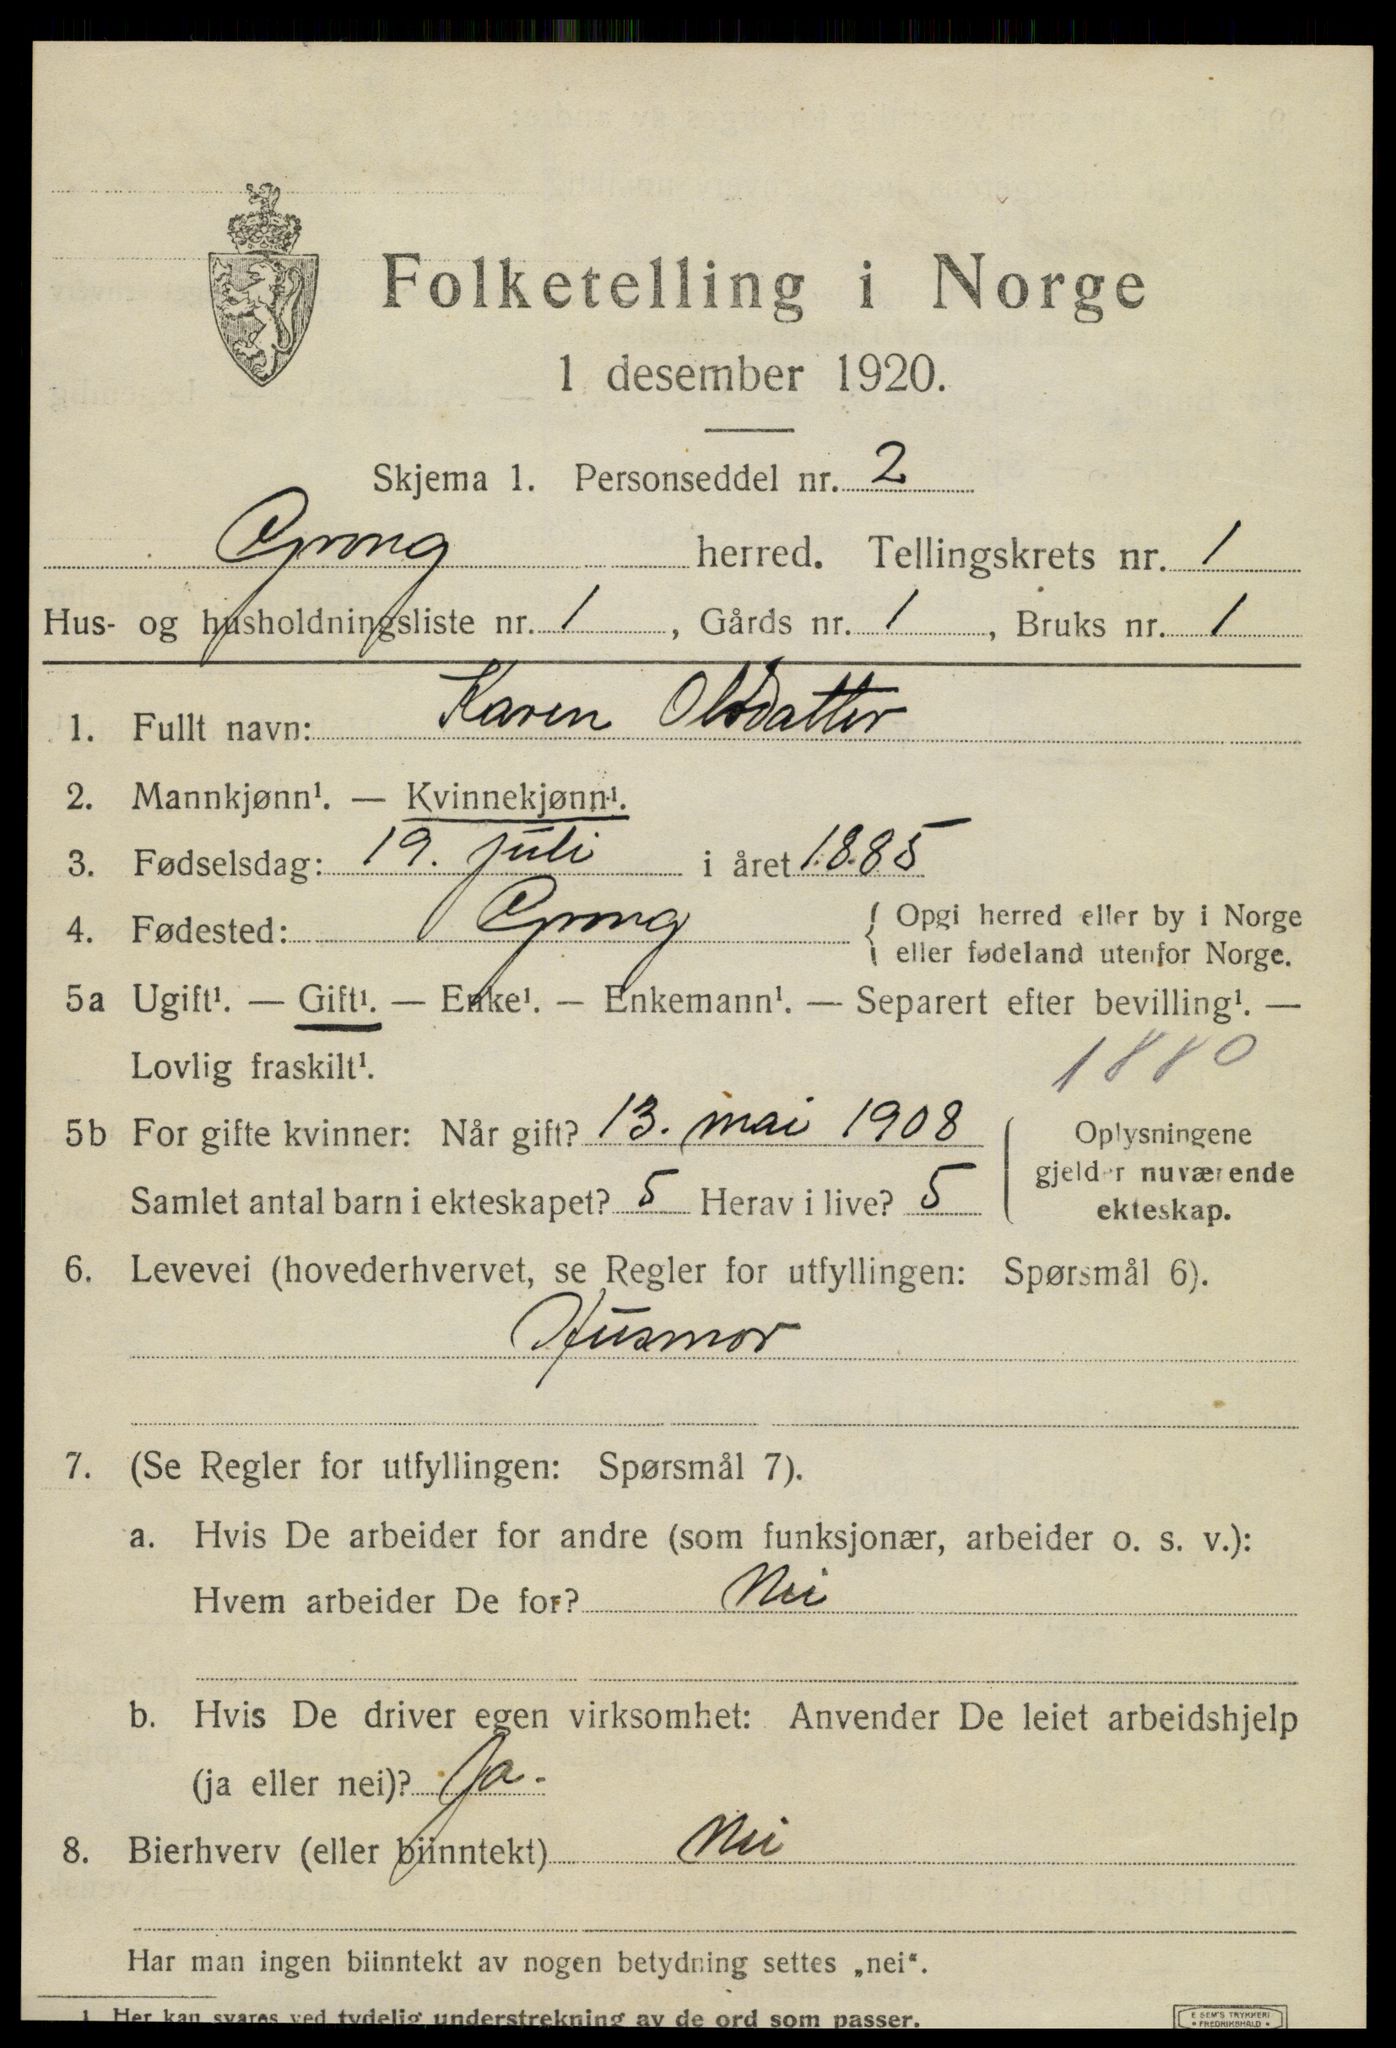 Folketelling i Norge
1 desember 1920.
Skjema 1. Personseddel nr. 2
Grong herred. Tellingskrets nr. 1
Hus- og husholdningsliste nr. 1, Gårds nr. 1, Bruks nr. 1
1. Fullt navn: Karen Olsdatter
2. Mannkjønn¹. — Kvinnekjønn¹.
3. Fødselsdag: 19. juli i året 1885
4. Fødested: Grong { Opgi herred eller by i Norge
eller fødeland utenfor Norge.
5a Ugift¹. — Gift¹. — Enke¹. — Enkemann¹. — Separert efter bevilling¹. —
Lovlig fraskilt¹.
1880
5b For gifte kvinner: Når gift? 13. mai 1908
Samlet antal barn i ekteskapet? 5 Herav i live? 5
Oplysningene
gjelder nuværende
ekteskap.
6. Levevei (hovederhvervet, se Regler for utfyllingen: Spørsmål 6).
Husmor
7. (Se Regler for utfyllingen: Spørsmål 7).
a. Hvis De arbeider for andre (som funksjonær, arbeider o. s. v.):
Hvem arbeider De for? Nei
b. Hvis De driver egen virksomhet: Anvender De leiet arbeidshjelp
(ja eller nei)? Ja.
8. Bierhverv (eller biinntekt) Nei
Har man ingen biinntekt av nogen betydning settes „nei“.
1. Her kan svares ved tydelig understrekning av de ord som passer.
E SEM'S TRYKKERI
• FREDRIKSHALD •